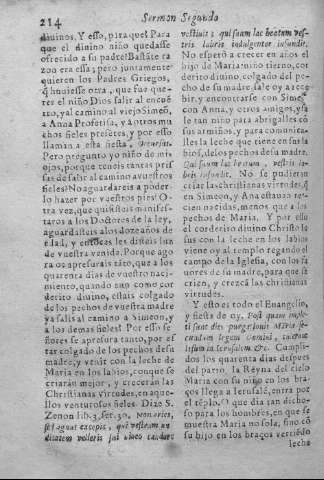 214
Sermon Segundo
diuinos. Y esso, para que? Para
que el diuino niño quedasse
ofrecido a su padre? Bastãte ra
zon era essa; pero juntamente
quieren los Padres Griegos,
q̃ huuiesse otra, que fue que-
rer el niño Dios salir al encuẽ
tro, y al camino al viejo Simeõ,
a Anna Profetisa, y a otros mu
chos fieles presetes, y por esso
llaman a esta fiesta,
Pero pregunto yo niño de mis
ojos, porque teneis tantas pries
sas de salir al camino a vuestros
fieles? No aguardareis a poder-
lo hazer por vuestros pies? O-
tra vez, que quisistis manifes-
taros a los Dotores de la ley,
aguardasteis a los doze años de
edad, y entõces les disteis luz
de vuestra venida. Porque ago
ra os apresurais tãto, que a los
quarenta dias de vuestro naci-
miento, quando aun como cor
derito diuino, estais colgado
de los pechos de vuestra madre
ya salis al camino a Simeon, y
a los demas fieles? Por esso se-
ñores se apresura tanto, por es
tar colgado de los pechos de su
madre, y venir con la leche de
Maria en los labios, con que se
criarán mejor, y creceràn las
Christianas virtudes, en aque-
llos venturosos fieles. Dize S.
Zenon lib. 3. ser. 30.
vestiuit; qui suam lac beatum ves-
tris labris indulgenter infundit.
No esperò a crecer en años el
hijo de Maria niño tierno, cor
derito diuino, colgado del pe-
cho de su madre sale oy a rece
bir, y encontrarse con Simeõ,
con Anna, y otros amigos, y sa
le tan niño para abrigalles cõ
sus armiños, y para comunica-
lles la leche que tiene en sus la
bios, de los pechos de su madre.
Qui suum lac beatum, vestris la-
bris infundit. No se pudieran
criar las christianas virtudes, q̃
en Simeon, y Ana estauan re-
cien nacidas, menos que a los
pechos de Maria. Y por esso
el corderito diuino Christo Ie
sus con la leche en los labios
viene oy al templo regando el
campo de la Iglesia, con los fa
uores de su madre, para que se
crien, y crezcã las christianas
virtudes.
Y esto es todo el Euangelio,
y fiesta de oy. Postquam imple-
ti sunt dies purgationis Mariæ se-
cundum legem Domini, tulerunt
Iesum in Ierusalem &c. Cumpli-
dos los quarenta dias despues
del parto, la Reyna del cielo
Maria con su niño en los bra-
ços llega a Ierusalẽ, entra por
el tẽplo. O que dia tan dicho-
so para los hombres, en que se
muestra Maria no sola, sino cõ
su hijo en los braços vertiẽdo
leche